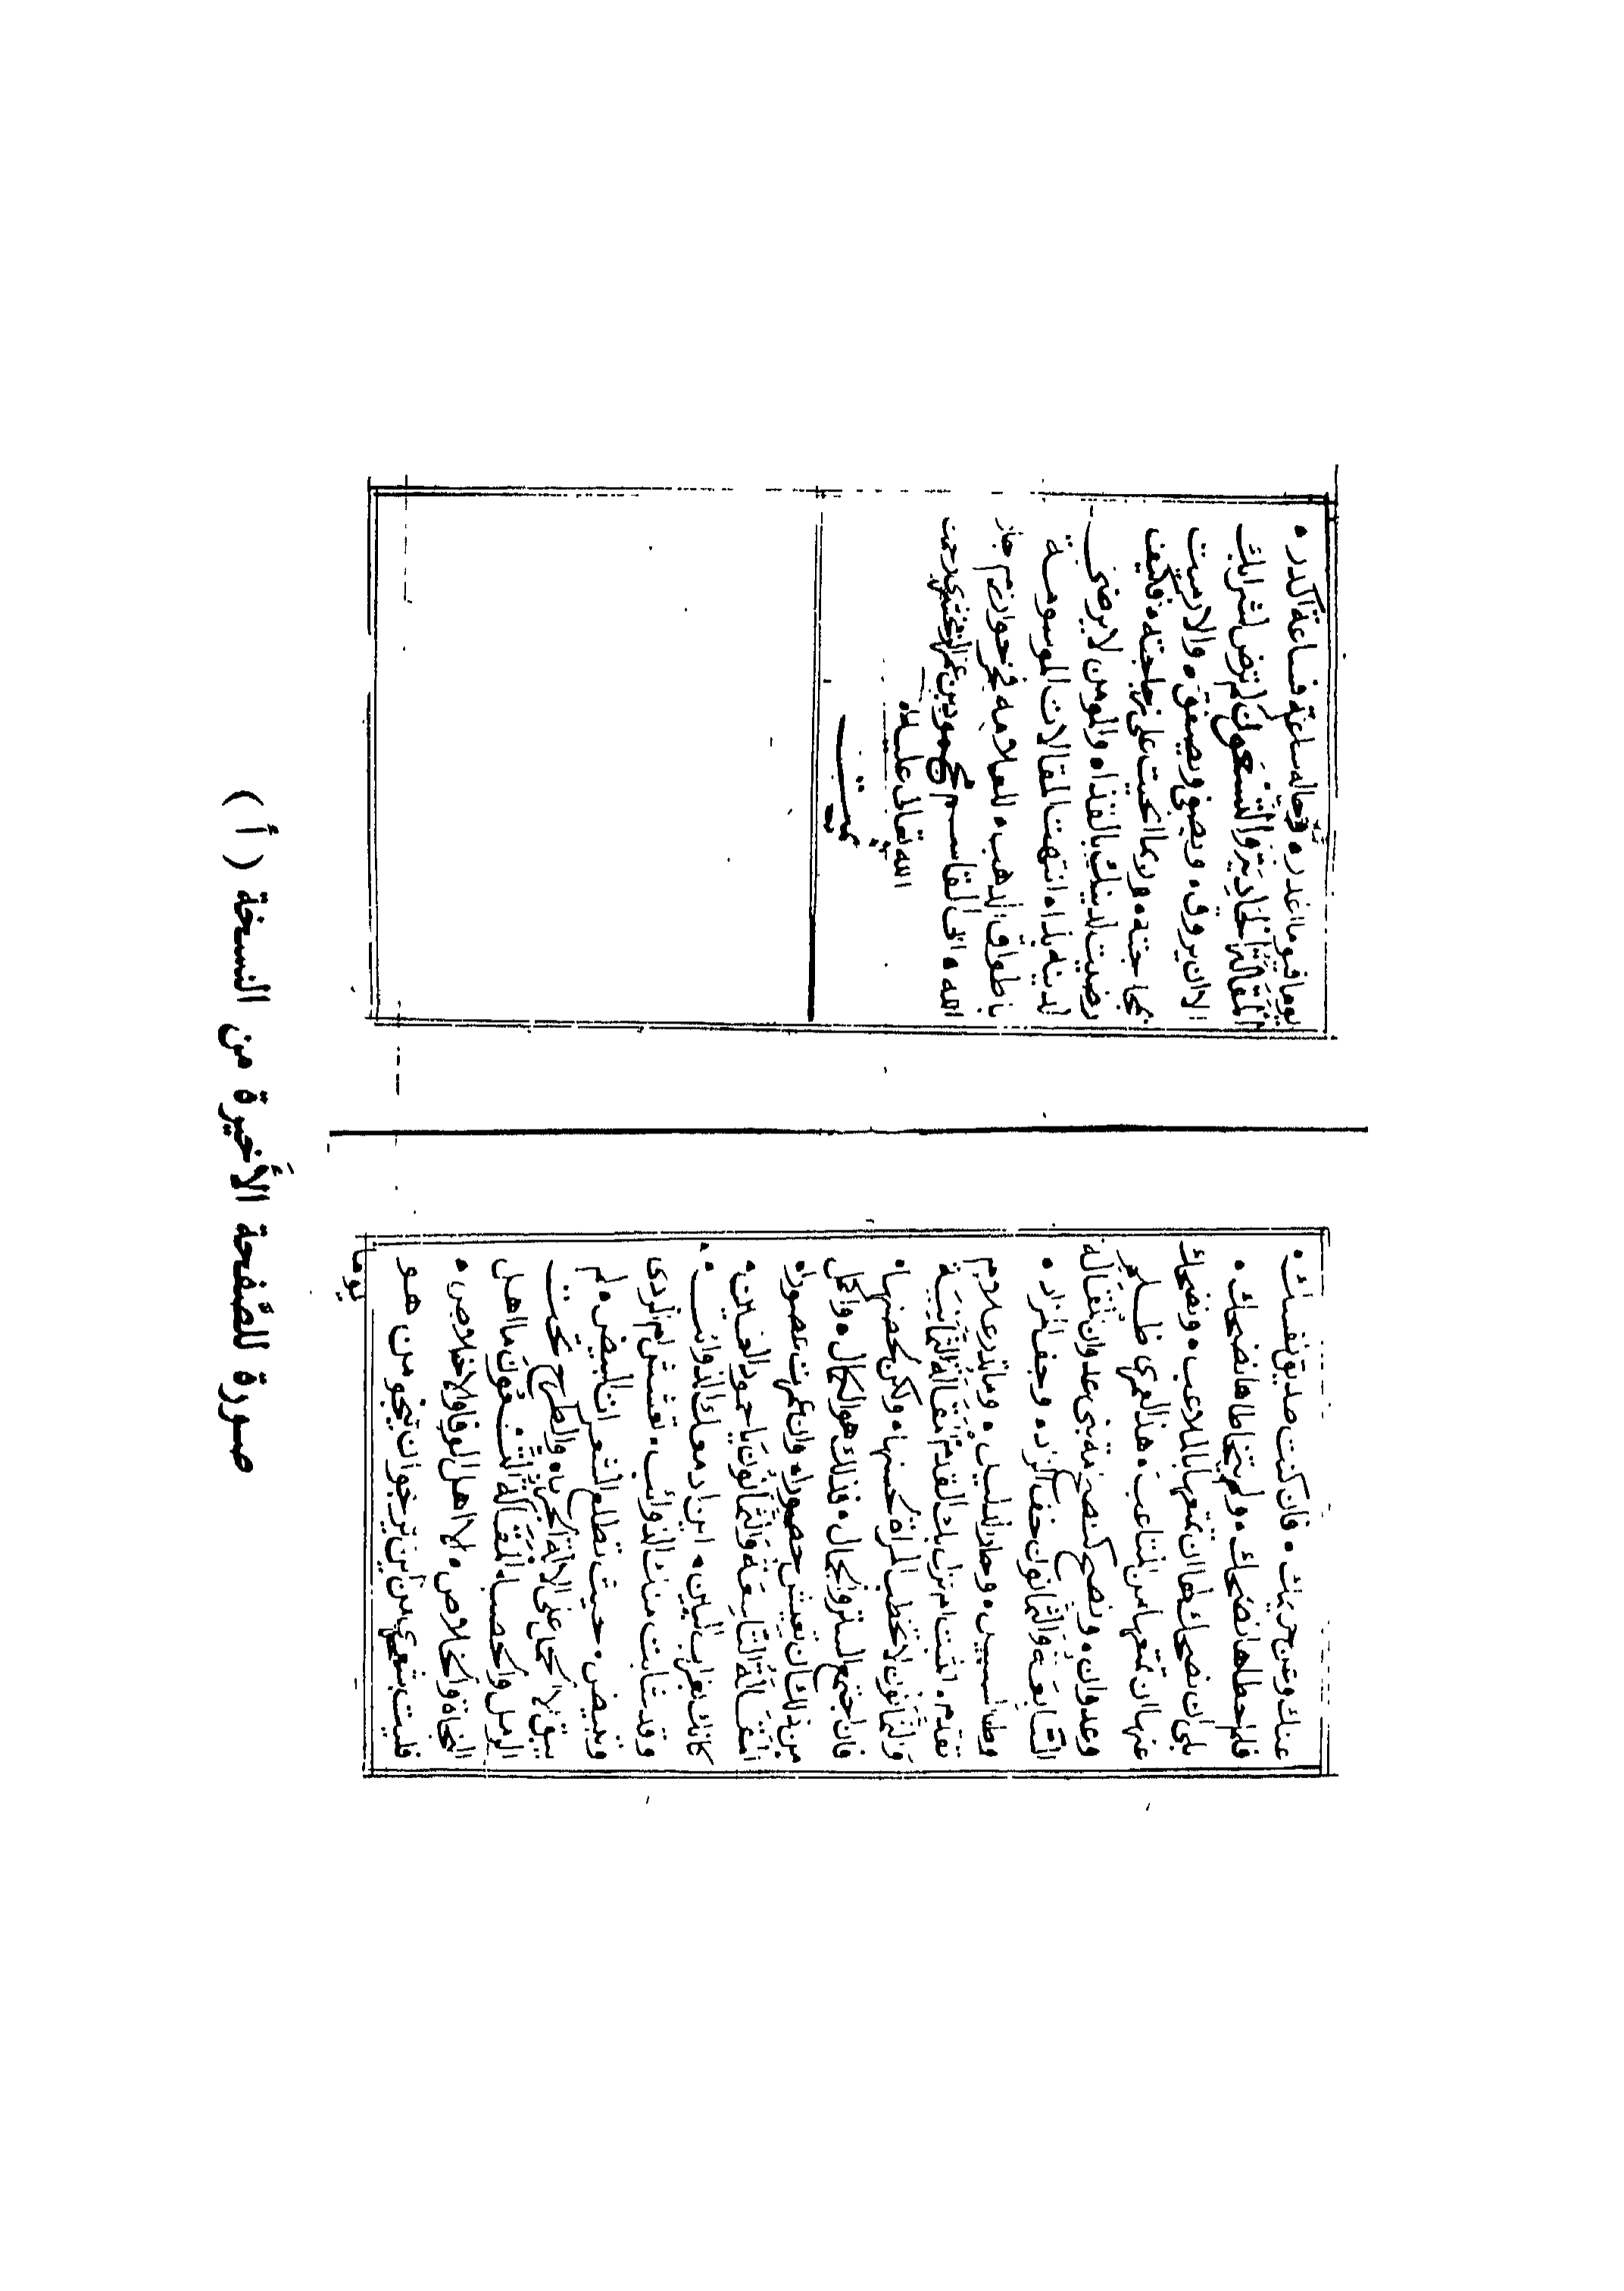 عنك ومن حربك • فان كنت صديق نفسك •
فلم حطاما نضحك • ولم يتخاطاها نضحك •
بلى ان نضحك لها ان تمتعها بالملاعب • ونضحك
عنها ان تمنعها من المتاعب • هذا لعمري ظلم
وعدوان • ونصح كنصح بنى عدوان المقالة
السابعة والثمانون خف الزاد • وجف المزاد •
وطال السبيل • وحار الدليل • وما تدرى علام
تقدم • اتثبت ام تزل بك القدم المقالة الثامنة
والثمانون لا تخطب المراة لحسنها • ولكن لحصنها •
فان اجتمع الستر والجمال • فذلك هو الكمال • واكمل
من ذلك ان تعيش حصورا • وان عمرت عصورا •
المقالة التاسعة والثمانون يا جمود العين •
كانك بغراب البين •
وقد شابت منك الذوائب •
وتبيض • حيث تطلع الشعرات البيض • لم
يبق لا على الالة الحدباء • والطرح تحت
الرمل والحصباء المقالة التسعون ما اهل
النجاة والخلاص • الا اهل الوفا والاخلاص •
فليت شعرى من اين ترجو ان تنجو من هو
يوما
يوما فيوما اغدر • وحاله ساعة فساعة اكدر •
المقالة الحادية والتسعون لم ترض لشرابك
الا ان يروق • ويصفى ويصفق • والا رميت
بمجاجته • وربما انحيت على زجاجته • فكيف
رضيت لدينك بالقذاه والمومن لا يرضى
لدينه بذاه انتهت المقالات الموسومة
باطواق الذهب • للعلامه فخر خوارزم جار
الله • ابى القاسم محمود بن عمر الزمخشرى رحمت
الله تعالى عليه
تمت
صورة للصفحة الأخيرة من النسخة ( أ )